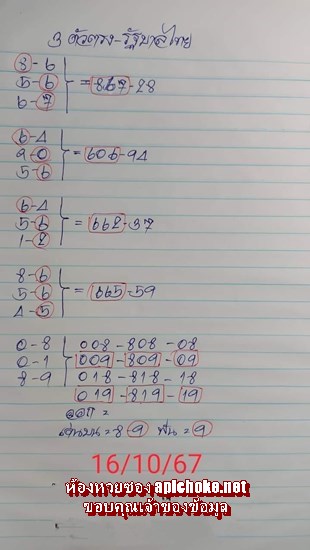 3 ตัวตรง-รัฐบาลไทย
8-6
5-6 = 867-28
6-7
6-4
2-0 = 606-94
5-6
6-4
5-6 = 662-37
1-2
8-6
5-6 = 665-59
4-5
0-8 008-808-08
0-1 009-809-09
8-9 018-818-18
019-819-19
ออก =
เด่นบน = 8-9 = 9
16/10/67
ห้องหวยซอง apichoke.net
ขอบคุณเจ้าของข้อมูล